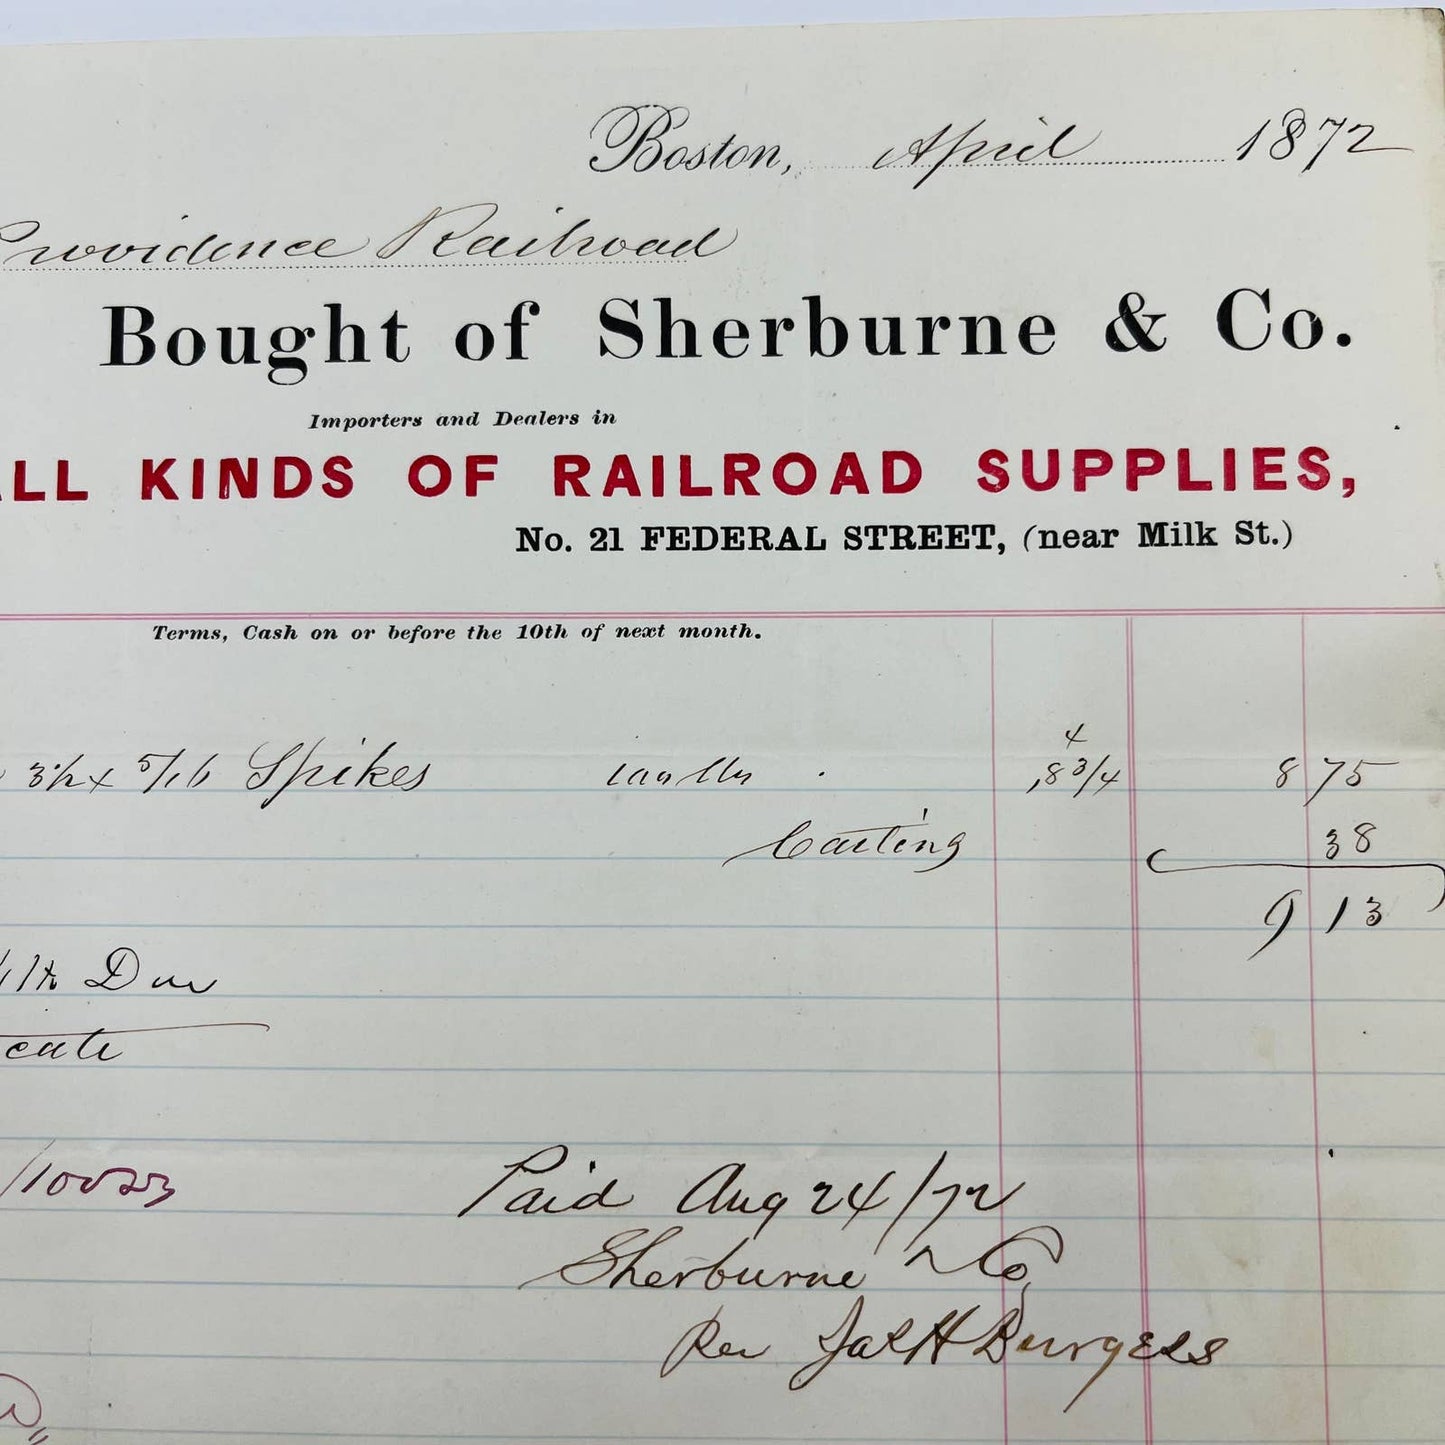 Boston, April 1872
Providence Railroad
Bought of Sherburne & Co.
Importers and Dealers in
ALL KINDS OF RAILROAD SUPPLIES,
No. 21 FEDERAL STREET, (near Milk St.)
Terms, Cash on or before the 10th of next month.
3½ x 5/16 Spikes ,8 3/4 8 75
Carting 38
9 13
Paid Aug 24/72
Sherburne & Co,
Jas H Burgess